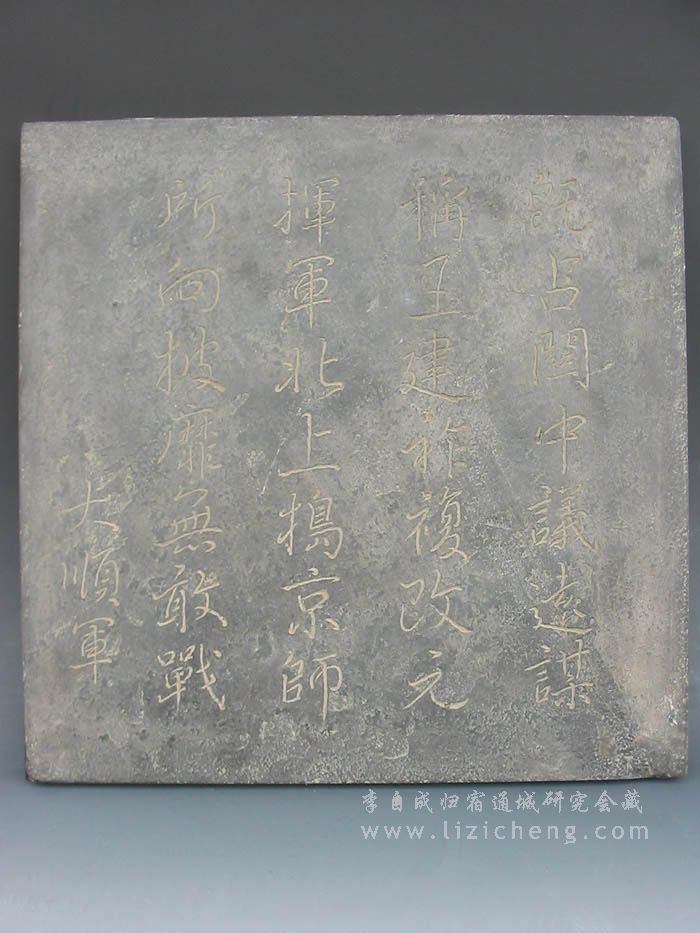 既占閏中議遠謀
稱王建祚複改元
揮軍北上搗京師
所向披靡無敢戰
大順軍
李自成归宿通城研究会藏
www.lizicheng.com